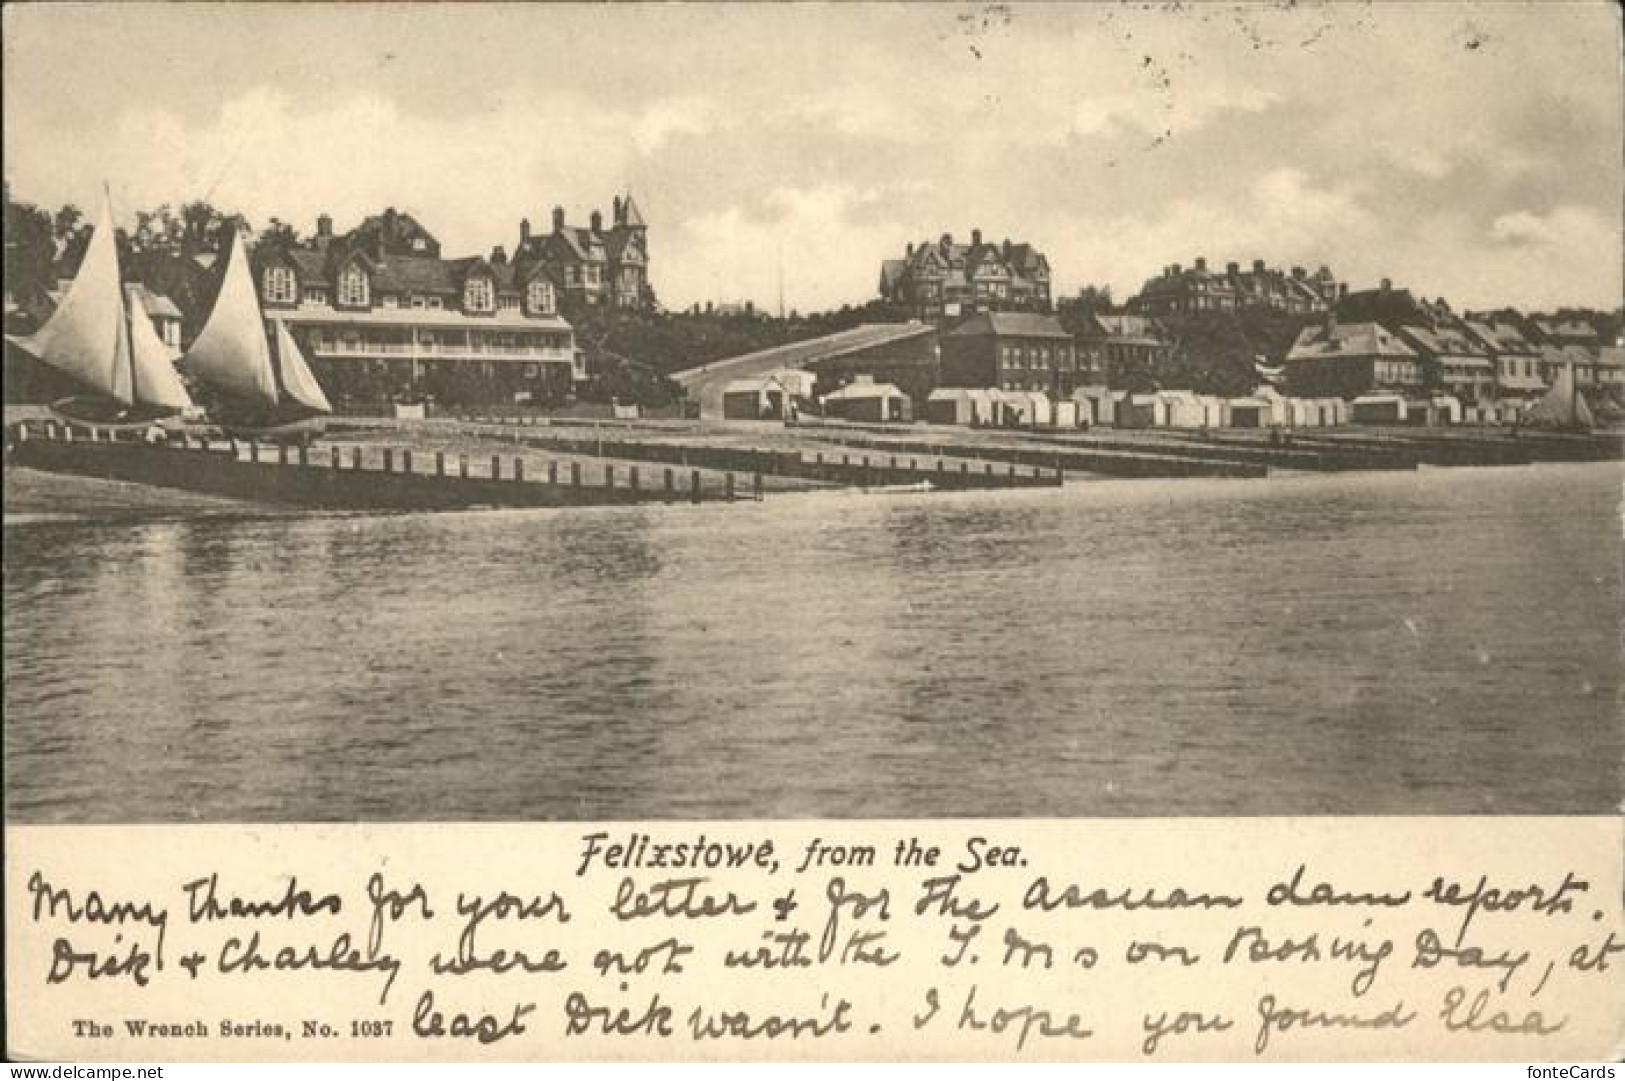 Felixstowe, from the Sea.
Many thanks for your letter & for the Assuan dam reports.
Dick & Charley were not with the J. Ms on Boxing Day, at
least Dick wasn't. I hope you found Elsa
The Wrench Series, No. 1037
delcampe.net
fonteCards